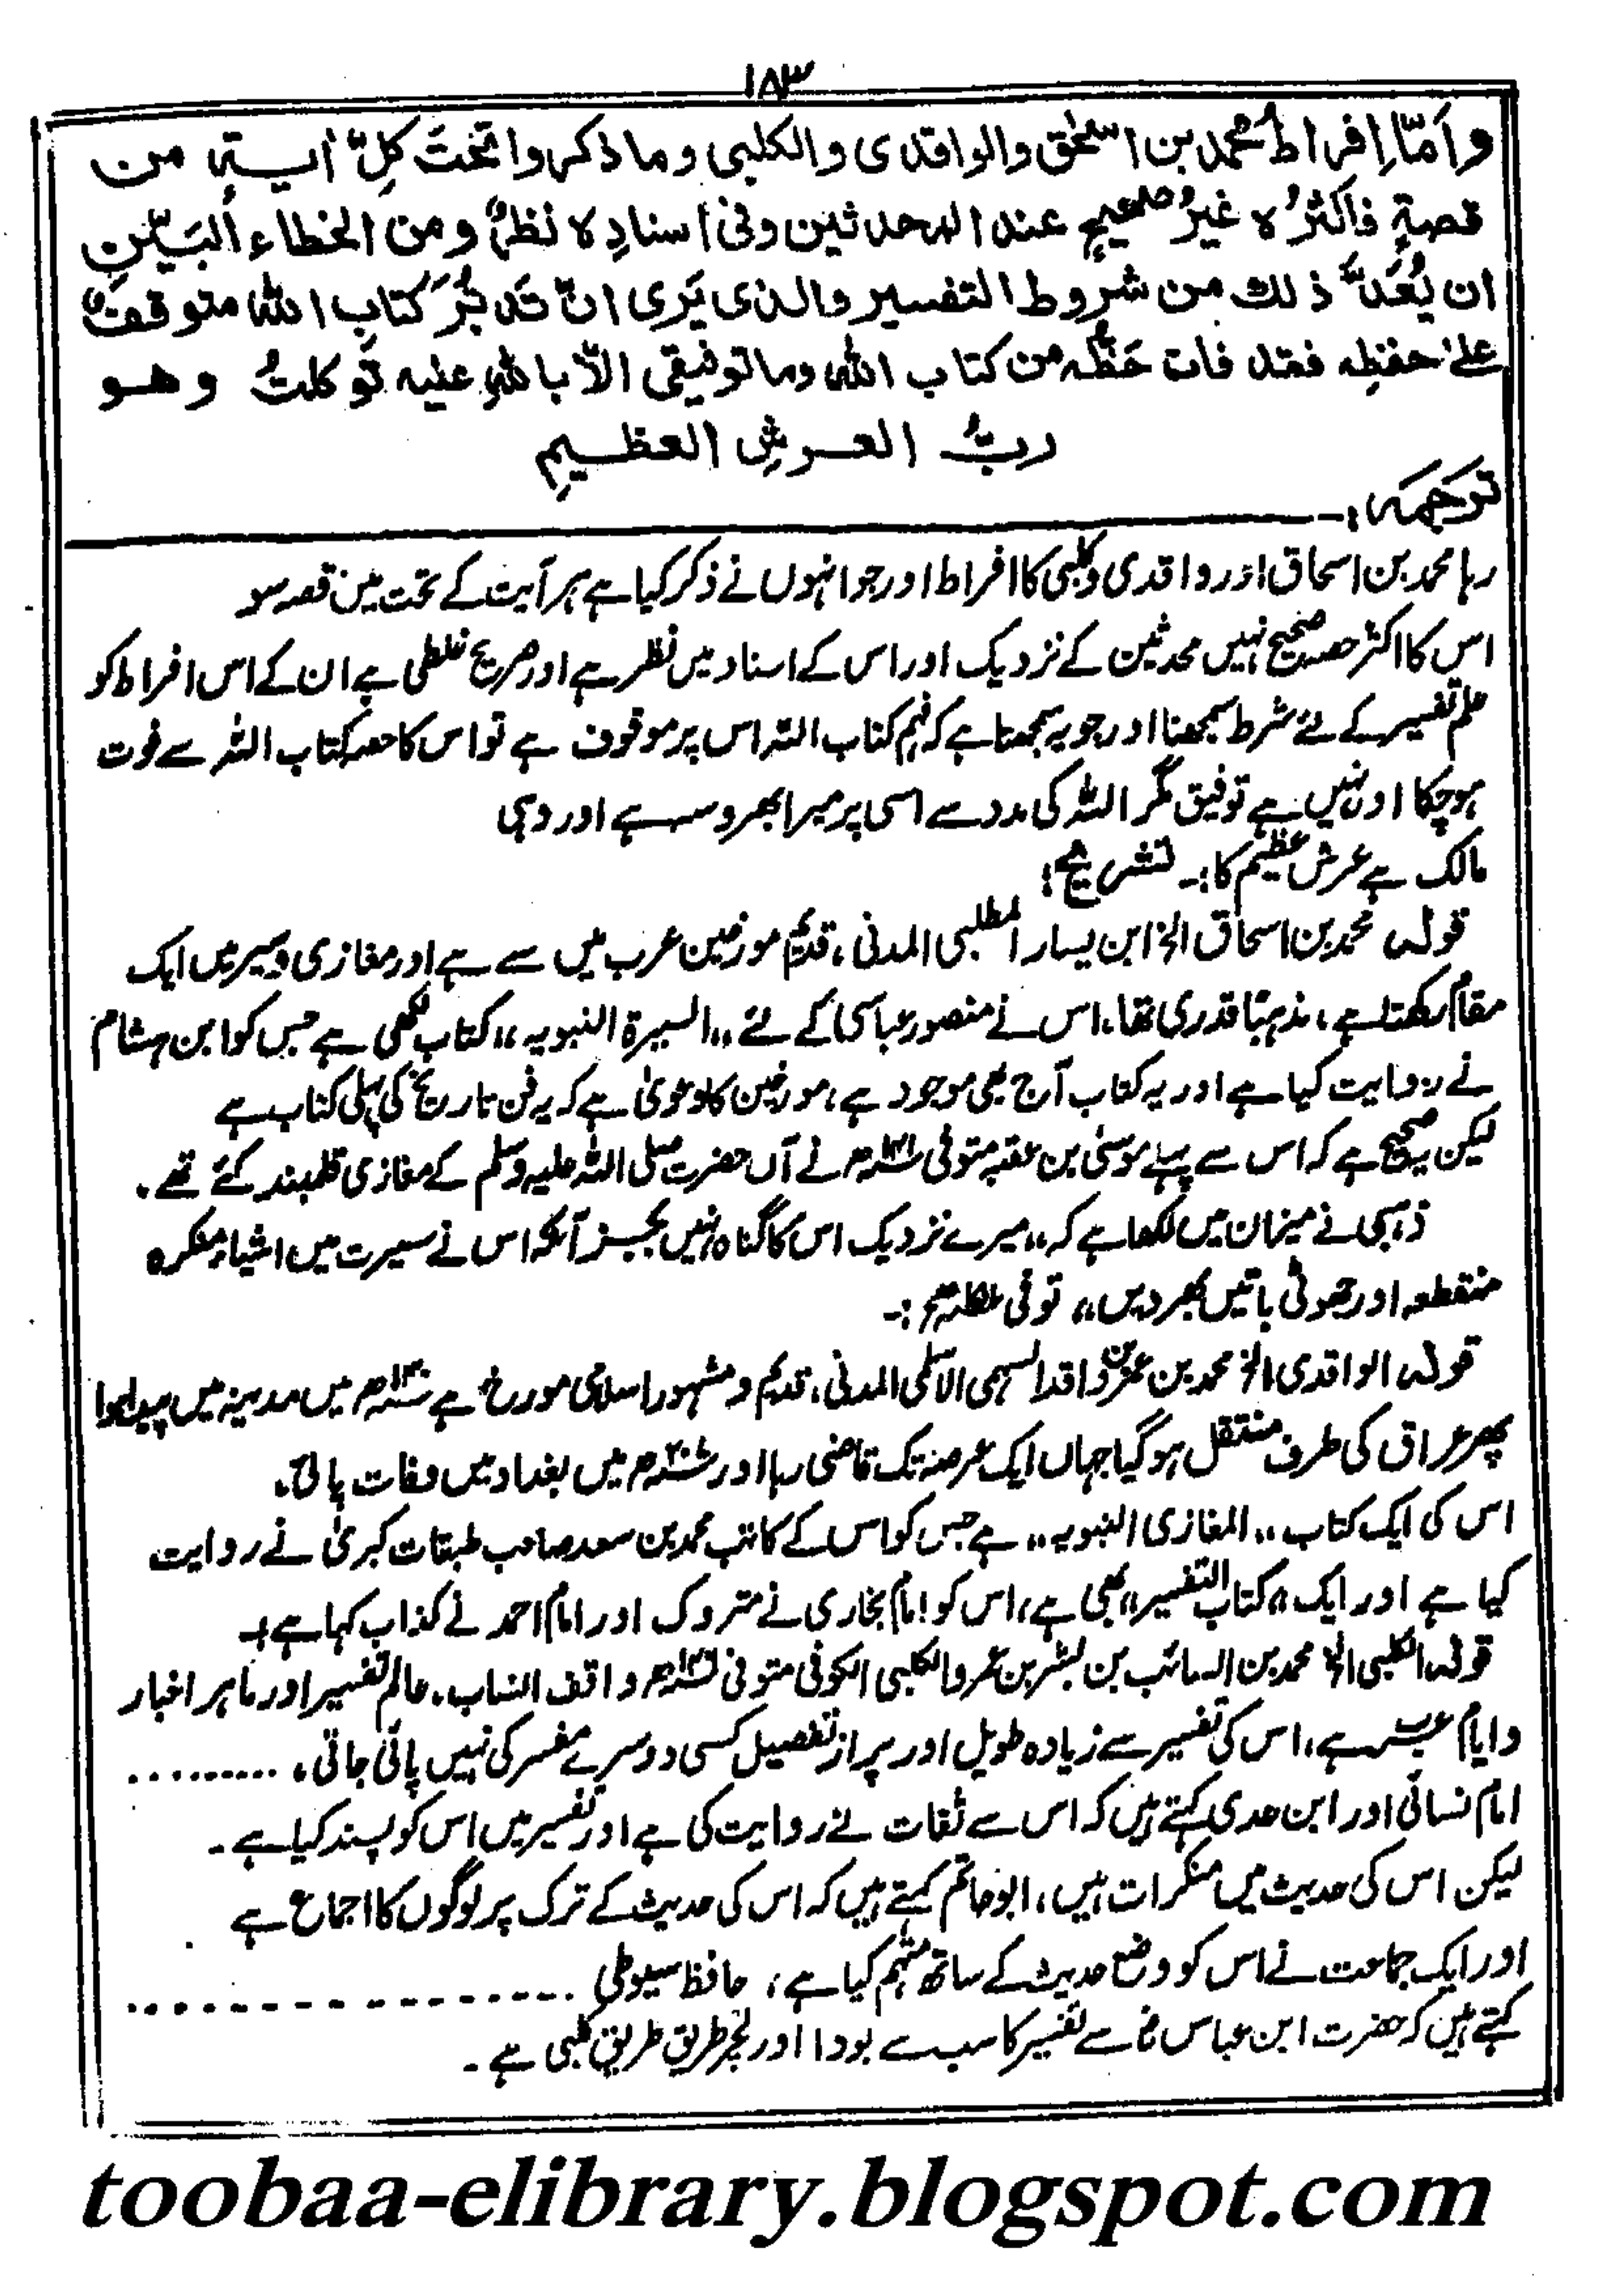 ١٨٣
واَمّا اِفراطُ محمد بن اسحٰق والواقدی والکلبی وما ذکروا تحتَ کلِّ اٰیۃٍ من
قصۃٍ فاکثرُہ غیرُ صحیحٍ عند المحدثین وفی اسنادِہ نظرٌ ومن الخطاءِ البَیّنِ
ان یُعَدَّ ذلک من شروط التفسیر والذی یَری انّ تَدبُّرَ کتابِ اللہ متوقفٌ
علیٰ حفظِہ فقد فات حَظُّہ من کتاب اللہ وما توفیقی الّا باللہِ علیہ توکلتُ وھو
ربُّ العرشِ العظیمِ
ترجمہ:۔
رہا محمد بن اسحاق اور واقدی وکلبی کا افراط اور جو انہوں نے ذکر کیا ہے ہر آیت کے تحت میں قصہ سو
اس کا اکثر حصہ صحیح نہیں محدثین کے نزدیک اور اس کے اسناد میں نظر ہے اور صریح غلطی ہے ان کے اس افراط کو
علم تفسیر کے لئے شرط سمجھنا اور جو یہ سمجھتا ہے کہ فہم کتاب اللہ اس پر موقوف ہے تو اس کا حصہ کتاب اللہ سے فوت
ہوچکا اور نہیں ہے توفیق مگر اللہ کی مدد سے اسی پر میرا بھروسہ ہے اور وہی
مالک ہے عرش عظیم کا:۔ تشریح:
قولہ محمد بن اسحاق الخ ابن یسار المطلبی المدنی، قدیم مورخین عرب میں سے ہے اور مغازی وسیر میں ایک
مقام رکھتا ہے، مذہبًا قدری تھا، اس نے منصور عباسی کے لئے ،،السیرۃ النبویہ،، کتاب لکھی ہے جس کو ابن ہشام
نے روایت کیا ہے اور یہ کتاب آج بھی موجود ہے، مورخین کا دعویٰ ہے کہ یہ فن تاریخ کی پہلی کتاب ہے
لیکن صحیح یہ ہے کہ اس سے پہلے موسیٰ بن عقبہ متوفی ۱۴۱ھ نے آں حضرت صلی اللہ علیہ وسلم کے مغازی قلمبند کئے تھے۔
ذہبی نے میزان میں لکھا ہے کہ ،،میرے نزدیک اس کا گناہ نہیں بجز آنکہ اس نے سیرت میں اشیاء منکرہ
منقطعہ اور جھوٹی باتیں بھر دیں،، توفی :۔
قولہ الواقدی الخ محمد بن عمر بن واقد السہمی الاسلمی المدنی، قدیم ومشہور اسلامی مورخ ہے ۱۳۰ھ میں مدینہ میں پیدا ہوا
پھر عراق کی طرف منتقل ہوگیا جہاں ایک عرصہ تک قاضی رہا اور ۲۰۷ھ میں بغداد میں وفات پائی۔
اس کی ایک کتاب ،،المغازی النبویہ،، ہے جس کو اس کے کاتب محمد بن سعد صاحب طبقات کبریٰ نے روایت
کیا ہے اور ایک ،،کتاب التفسیر،، بھی ہے، اس کو امام بخاری نے متروک اور امام احمد نے کذاب کہا ہے:۔
قولہ الکلبی الخ محمد بن السائب بن بشر بن عمرو الکلبی الکوفی متوفی ۱۴۶ھ واقف انساب، عالم تفسیر اور ماہر اخبار
وایام عرب ہے، اس کی تفسیر سے زیادہ طویل اور پر از تفصیل کسی دوسرے مفسر کی نہیں پائی جاتی، ..........
امام نسائی اور ابن عدی کہتے ہیں کہ اس سے ثقات نے روایت کی ہے اور تفسیر میں اس کو پسند کیا ہے۔
لیکن اس کی حدیث میں منکرات ہیں، ابوحاتم کہتے ہیں کہ اس کی حدیث کے ترک پر لوگوں کا اجماع ہے
اور ایک جماعت نے اس کو وضع حدیث کے ساتھ متہم کیا ہے، حافظ سیوطی ..................
کہتے ہیں کہ حضرت ابن عباس رض سے تفسیر کا سب سے بودا اور لچر طریق طریق کلبی ہے۔
toobaa-elibrary.blogspot.com